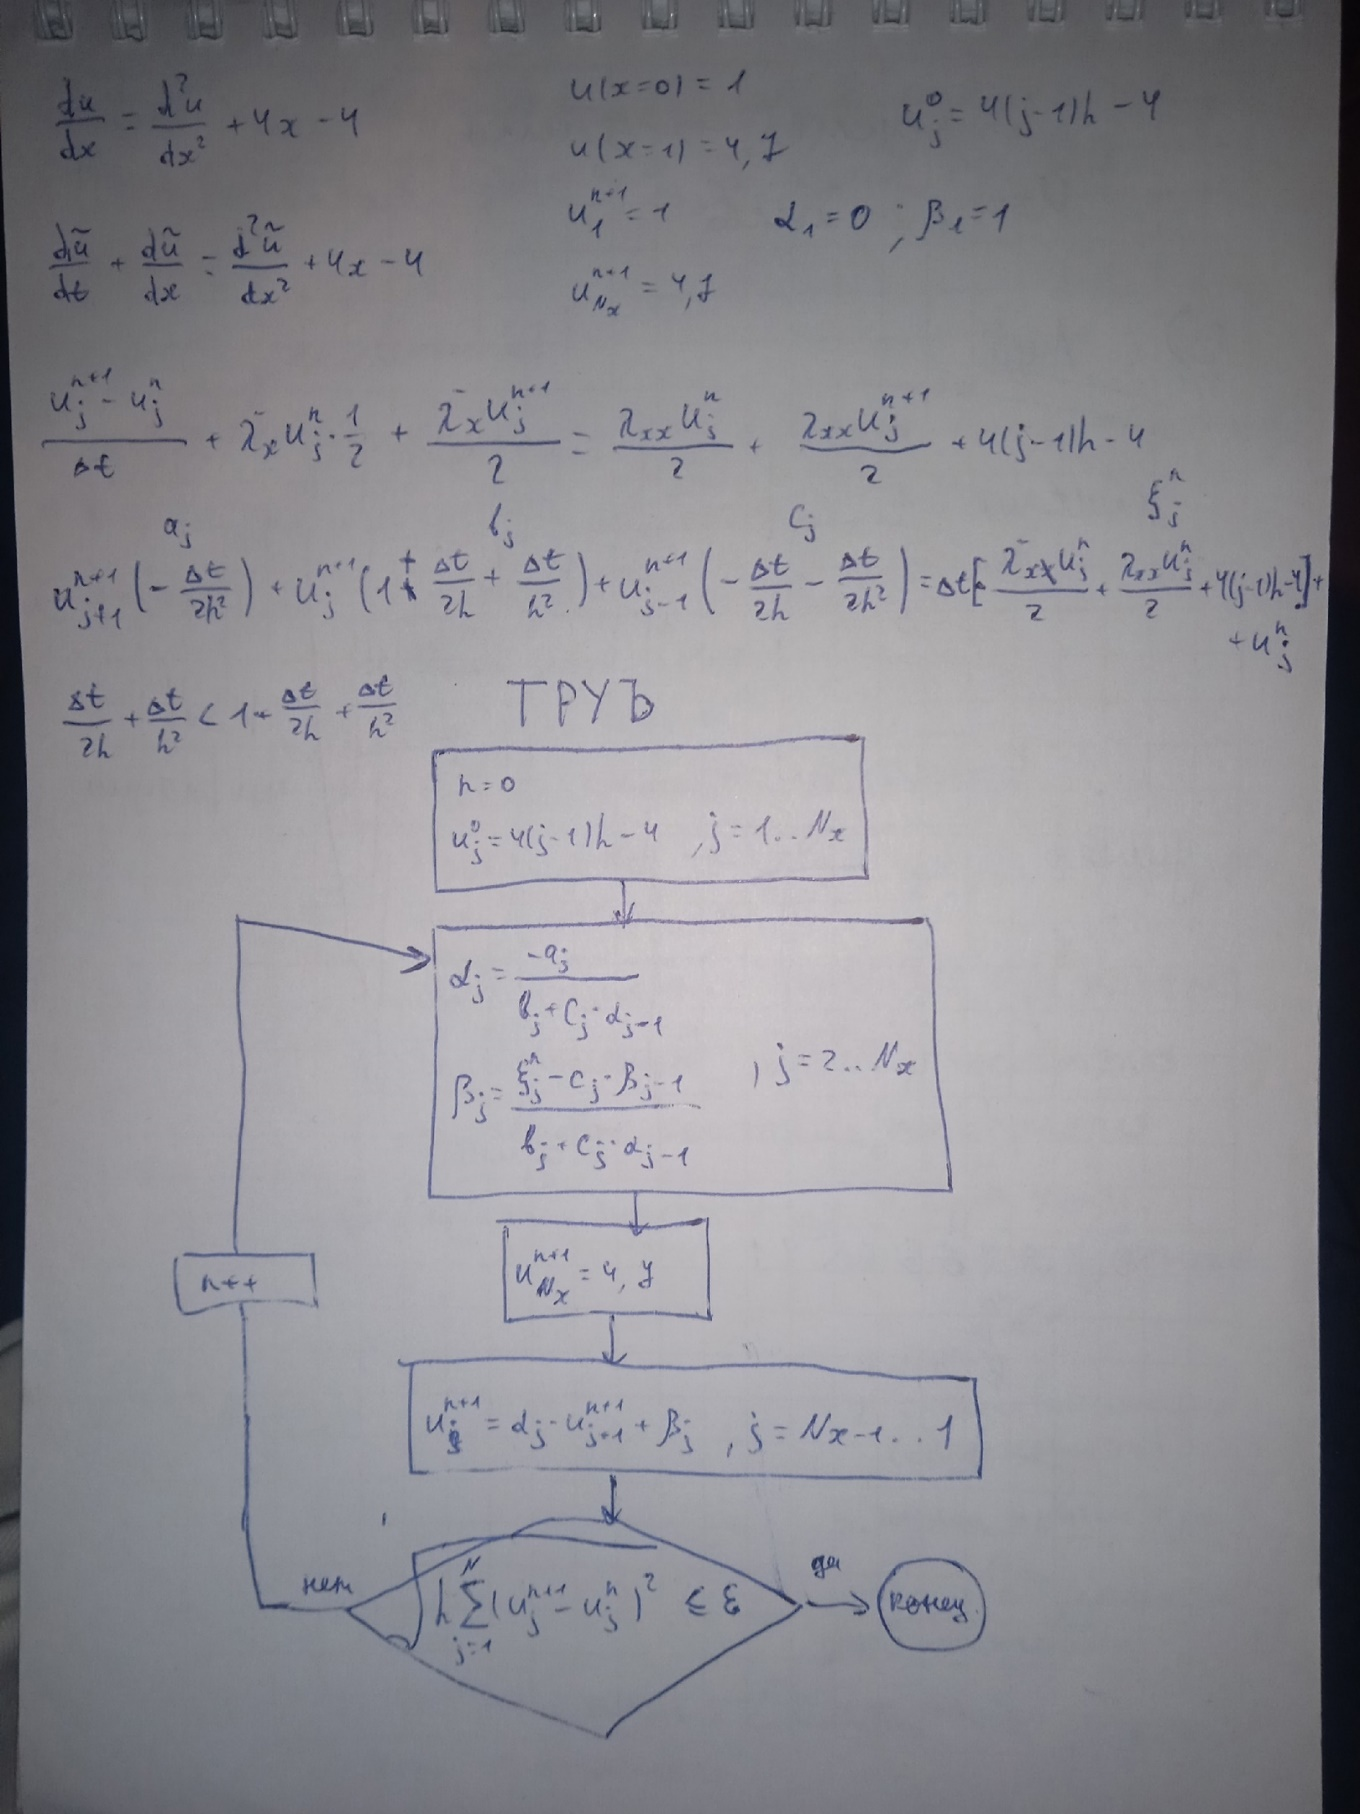 du/dx = d²u/dx² + 4x - 4
u(x=0) = 1
u(x=1) = 4,7
u_j^0 = 4(j-1)h - 4
u_1^{n+1} = 1
α_1 = 0 ; β_1 = 1
u_{Nx}^{n+1} = 4,7
dũ/dt + dũ/dx = d²ũ/dx² + 4x - 4
(u_j^{n+1} - u_j^n)/Δt + λ_x^- u_j^n · 1/2 + (λ_x^- u_j^{n+1})/2 = (λ_xx u_j^n)/2 + (λ_xx u_j^{n+1})/2 + 4(j-1)h - 4
a_j b_j c_j ξ_j^n
u_{j+1}^{n+1} (-Δt/2h²) + u_j^{n+1} (1 + Δt/2h + Δt/h²) + u_{j-1}^{n+1} (-Δt/2h - Δt/2h²) = Δt[-(λ_xx^- u_j^n)/2 + (λ_xx u_j^n)/2 + 4(j-1)h-4] +
+ u_j^n
Δt/2h + Δt/h² < 1 + Δt/2h + Δt/h² ТРУЪ
n = 0
u_j^0 = 4(j-1)h - 4 , j = 1..Nx
α_j = -a_j/(b_j + c_j · α_{j-1})
β_j = (ξ_j^n - c_j · β_{j-1})/(b_j + c_j · α_{j-1})
, j = 2..Nx
u_{Nx}^{n+1} = 4,7
n++
u_j^{n+1} = α_j · u_{j+1}^{n+1} + β_j , j = Nx-1..1
нет
√(h Σ_{j=1}^N (u_j^{n+1} - u_j^n)²) ≤ ε
да
конец